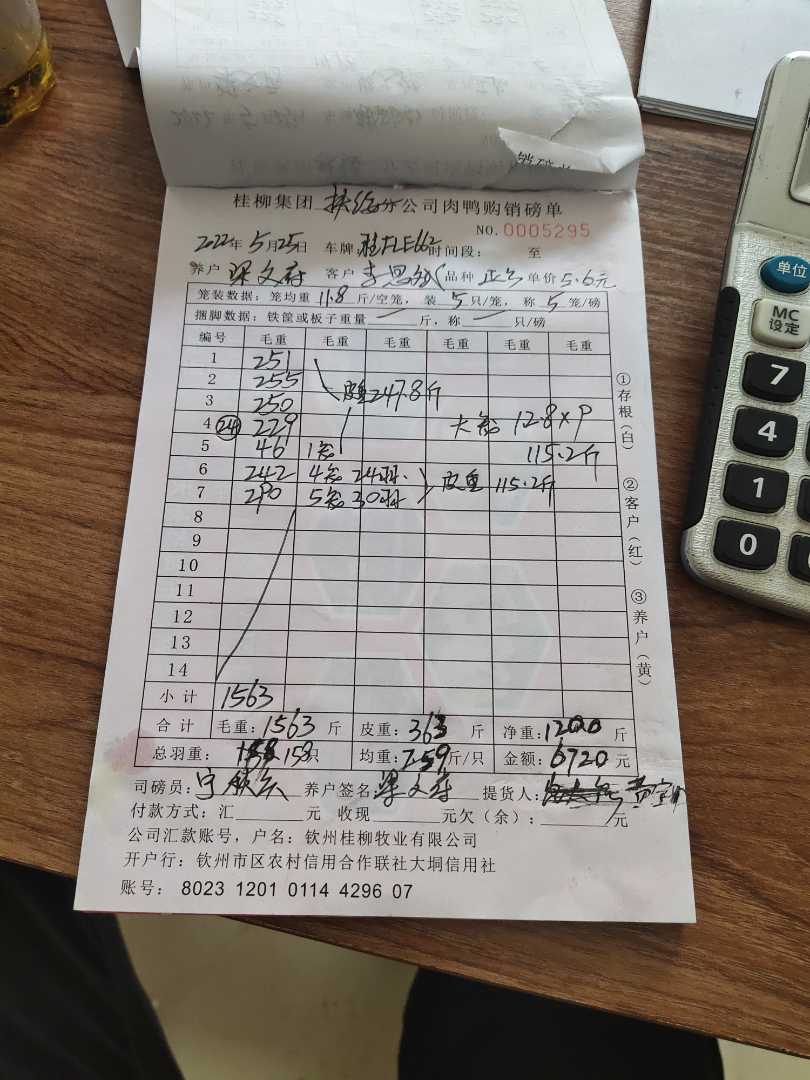 桂柳集团 扶绥分公司肉鸭购销磅单
NO.0005295
2022年5月25日 车牌 桂FLE662 时间段: 至
养户 梁文府 客户 李思斌 品种 正 单价 5.6元
笼装数据: 笼均重 11.8 斤/空笼, 装 5 只/笼, 称 5 笼/磅
捆脚数据: 铁篮或板子重量 一 斤, 称 一 只/磅
编号 毛重 毛重 毛重 毛重 毛重 毛重
1 251
2 255 皮重247.8斤
3 250
4 ㉔ 229 大笼 12.8×9
5 46 1笼 115.2斤
6 242 4笼 24羽
7 290 5笼 30羽 皮重 115.2斤
8
9
10
11
12
13
14
小计 1563
合计 毛重: 1563 斤 皮重: 363 斤 净重: 1200 斤
总羽重: 158 158只 均重: 7.59斤/只 金额: 6720 元
司磅员: 养户签名 梁文府 提货人:
付款方式: 汇 元 收现 元欠(余): 元
公司汇款账号, 户名: 钦州桂柳牧业有限公司
开户行: 钦州市区农村信用合作联社大垌信用社
账号: 8023 1201 0114 4296 07
①存根(白)
②客户(红)
③养户(黄)
单位
MC
设定
7
4
1
0